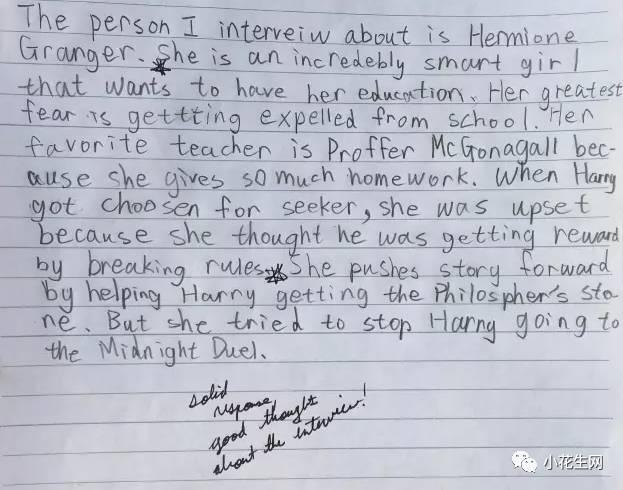 The person I interveiw about is Hermione
Granger. She is an incredebly smart girl
that wants to have her education. Her greatest
fear is gettting expelled from school. Her
favorite teacher is Proffer McGonagall bec-
ause she gives so much homework. When Harry
got choosen for seeker, she was upset
because she thought he was getting reward
by breaking rules. She pushes story forward
by helping Harry getting the Philospher's sto
ne. But she tried to stop Harry going to
the Midnight Duel.
solid
response
good thought
about the interview!
小花生网